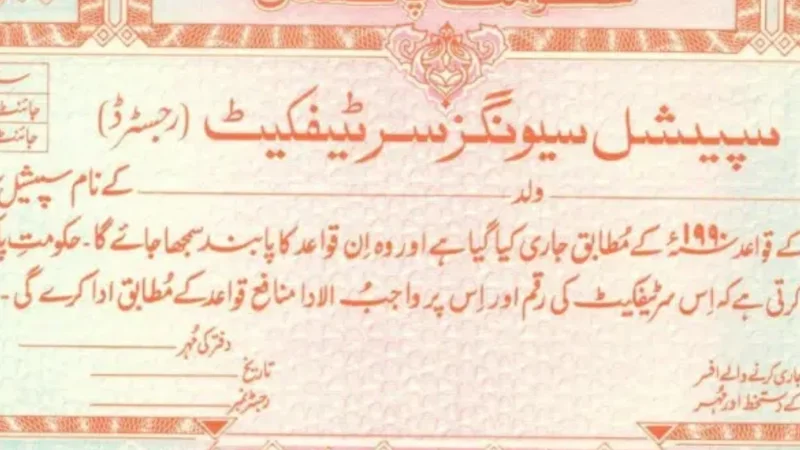 سپیشل سیونگز سرٹیفکیٹ (رجسٹرڈ)
جائنٹ
جائنٹ
ولد ـــــ کے نام سپیشل
کے قواعد ۱۹۹۰؁ء کے مُطابق جاری کیا گیا ہے اور وہ اِن قواعد کا پابند سمجھا جائے گا۔ حکومتِ
کرتی ہے کہ اِس سرٹیفکیٹ کی رقم اور اِس پر واجبُ الادا منافع قواعد کے مُطابق ادا کرے گی۔
دفتر کی مُہر
جاری کرنے والے افسر
تاریخ
کے دستخط اور مُہر
رجسٹر نمبر